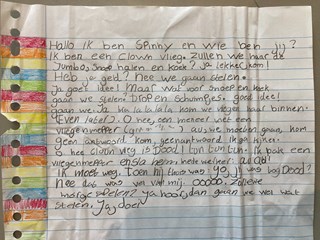 Hallo ik ben Spinny en wie ben jij?
Ik ben een Clown vlieg. zullen we naar de
Jumbo, snoep halen en koek? Ja lekker, kom!
Heb je geld? Nee we gaan stelen.
Ja goed idee! Maar wat voor snoep en koek
gaan we stelen. Dropen schuimpjes. good idee!
Gaan we. Ja. la la la la la kom we vliegen naar binnen.
(Even later). O nee, een meneer met een
vliegenmepper au, we moeten gaan, kom
geen antwoord. kom, geen antwoord. Ik ga kijken.
O nee Clown vlieg is Dead! tun tun tun. Ik pak een
vliegenmepper en sla hem. hele meneer: au au!
Ik moet weg. toen hij thuis was: jij was Dood?
Nee dat was we van mij. ooooo. Zullen we
morgen spelen? ja hoor, dan gaan we wel wat
stelen. Ja, doei